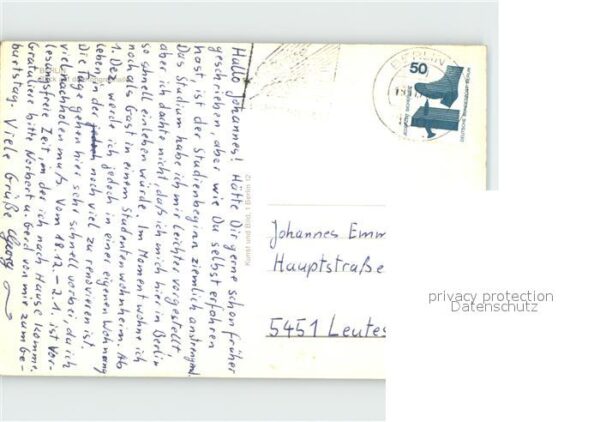 Hallo Johannes! Hätte Dir gerne schon früher
geschrieben, aber wie Du selbst erfahren
hast, ist der Studienbeginn ziemlich anstrengend.
Das Studium habe ich mir leichter vorgestellt,
aber ich dachte nicht, daß ich mich hier in Berlin
so schnell einleben würde. Im Moment wohne ich
noch als Gast in einem Studentenwohnheim. Ab
1. Dez. werde ich jedoch in einer eigenen Wohnung
leben, in der jedoch noch viel zu renovieren ist.
Die Tage gehen hier sehr schnell vorbei, da ich
viel nachholen muß. Vom 18.12. - 2.1. ist Vor-
lesungsfreie Zeit, in der ich nach Hause komme.
Gratuliere bitte Norbert u. Gerd von mir zum Ge-
burtstag. Viele Grüße Georg
Kunst und Bild, 1 Berlin 12
BERLIN
50
DEUTSCHE BUNDESPOST BERLIN
Johannes Emm
Hauptstraße
5451 Leutes
privacy protection
Datenschutz